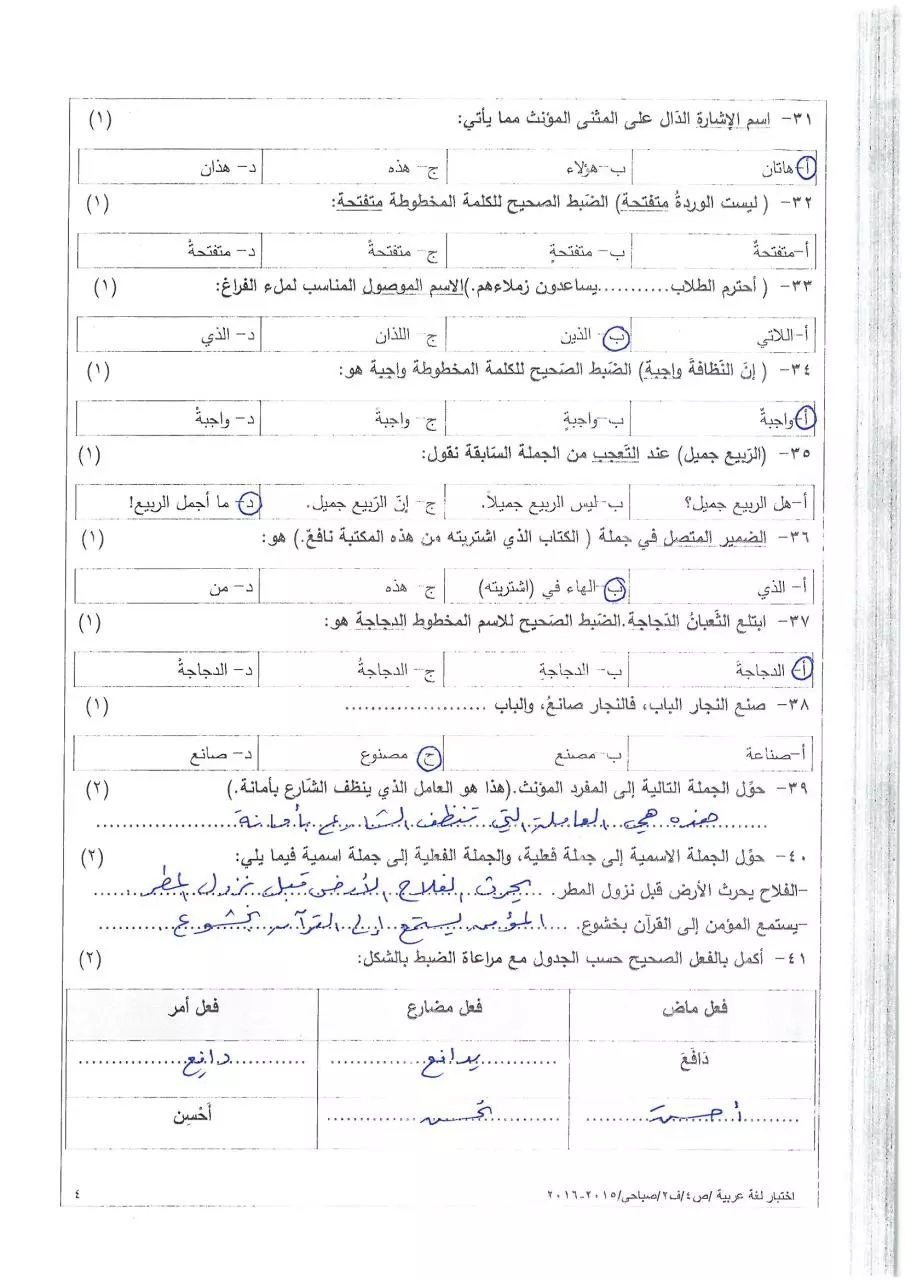 ٣١- اسم الإشارة الدّال على المثنى المؤنث مما يأتي: (١)
أ- هاتان ب- هؤلاء ج- هذه د- هذان
٣٢- ( ليست الوردةُ متفتحة) الضبط الصحيح للكلمة المخطوطة متفتحة: (١)
أ- متفتحةٌ ب- متفتحةٍ ج- متفتحةُ د- متفتحةً
٣٣- ( أحترم الطلاب...........يساعدون زملاءهم.)الاسم الموصول المناسب لملء الفراغ: (١)
أ- اللاتي ب- الذين ج- اللذان د- الذي
٣٤- ( إنّ النّظافةَ واجبة) الضّبط الصّحيح للكلمة المخطوطة واجبة هو: (١)
أ- واجبةٌ ب- واجبةٍ ج- واجبةَ د- واجبةُ
٣٥- (الرّبيع جميل) عند التّعجب من الجملة السّابقة نقول: (١)
أ- هل الربيع جميل؟ ب- ليس الربيع جميلاً. ج- إنّ الرّبيع جميل. د- ما أجمل الربيع!
٣٦- الضمير المتصل في جملة ( الكتاب الذي اشتريته من هذه المكتبة نافعٌ.) هو: (١)
أ- الذي ب- الهاء في (اشتريته) ج- هذه د- من
٣٧- ابتلع الثّعبانُ الدّجاجة.الضّبط الصّحيح للاسم المخطوط الدجاجة هو: (١)
أ- الدجاجةَ ب- الدجاجةِ ج- الدجاجةُ د- الدجاجةْ
٣٨- صنع النجار الباب، فالنجار صانعُ، والباب ..................... (١)
أ- صناعة ب- مصنع ج- مصنوع د- صانع
٣٩- حوّل الجملة التالية إلى المفرد المؤنث.(هذا هو العامل الذي ينظف الشّارع بأمانة.) (٢)
هذه هي العاملة التي تنظف الشارع بأمانة
٤٠- حوّل الجملة الاسمية إلى جملة فعلية، والجملة الفعلية إلى جملة اسمية فيما يلي: (٢)
-الفلاح يحرث الأرض قبل نزول المطر. يحرث الفلاح الأرض قبل نزول المطر
-يستمع المؤمن إلى القرآن بخشوع. المؤمن يستمع إلى القرآن بخشوع
٤١- أكمل بالفعل الصحيح حسب الجدول مع مراعاة الضبط بالشكل: (٢)
فعل ماض فعل مضارع فعل أمر
دَافَعَ يدافع دافِع
أحسن تحسن أَحْسِن
اختبار لغة عربية /ص٤/ف٢/صباحي/٢٠١٥-٢٠١٦ ٤